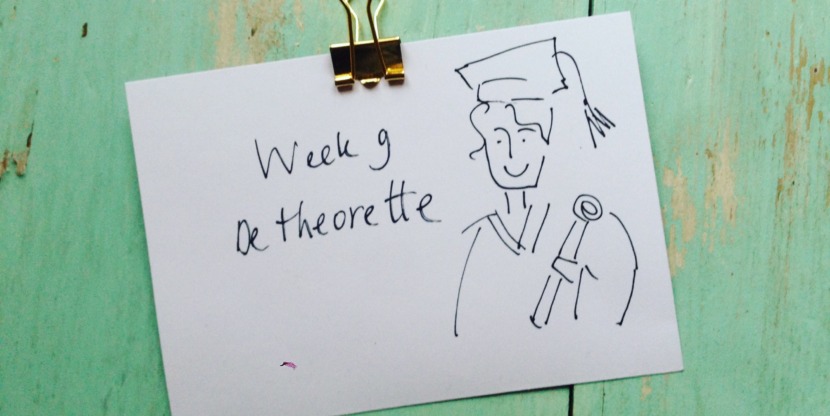 Week 9
De theorette